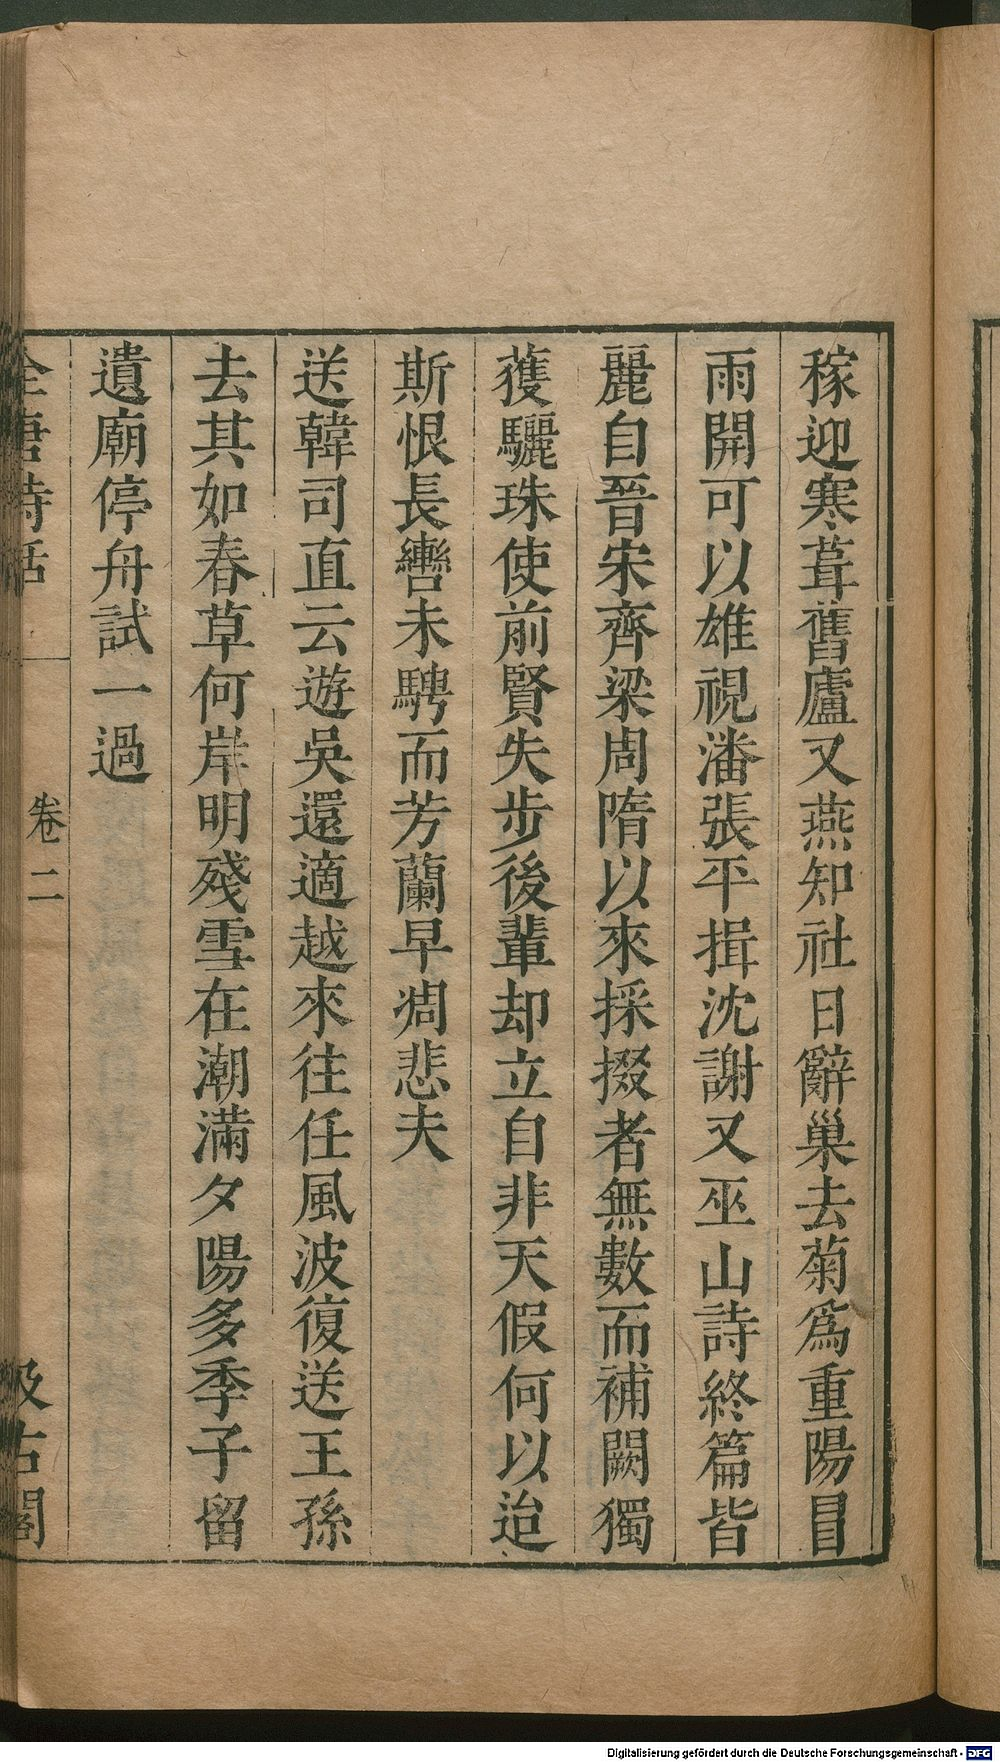 稼迎寒葺舊廬又燕知社日辭巢去菊爲重陽冒
雨開可以雄視潘張平揖沈謝又巫山詩終篇皆
麗自晉宋齊梁周隋以來採掇者無數而補闕獨
獲驪珠使前賢失步後輩却立自非天假何以迨
斯恨長轡未騁而芳蘭早凋悲夫
送韓司直云遊吳還適越來往任風波復送王孫
去其如春草何岸明殘雪在潮滿夕陽多季子留
遺廟停舟試一過
全唐詩話 卷二 汲古閣
Digitalisierung gefördert durch die Deutsche Forschungsgemeinschaft - DFG